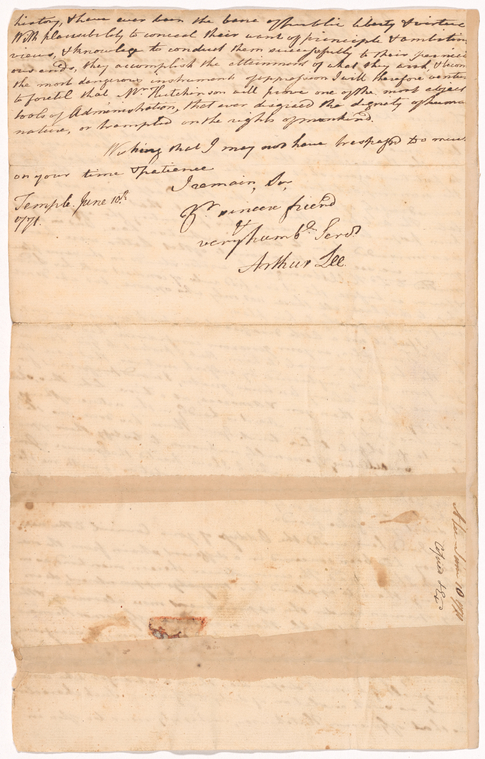 history, & have ever been the bane of public liberty & virtue.
With plausibility to conceal their want of principle & ambitious
views, & knowledge to conduct them successfully to their pernici
ous ends, they accomplish the attainment of what they wish, & become
the most dangerous instruments of oppression I will therefore venture
to foretel that Mr. Hutchinson will prove one of the most abject
tools of Administration, that ever disgraced the dignity of human
nature, or trampled on the rights of mankind.
Wishing that I may not have trespassd too much
on your time & patience
I remain, Sir,
Yr. sincere friend
&
very humbe. Servt
Arthur Lee
Temple. June 10th.
1771.
A Lee June 10 1771
Copied &